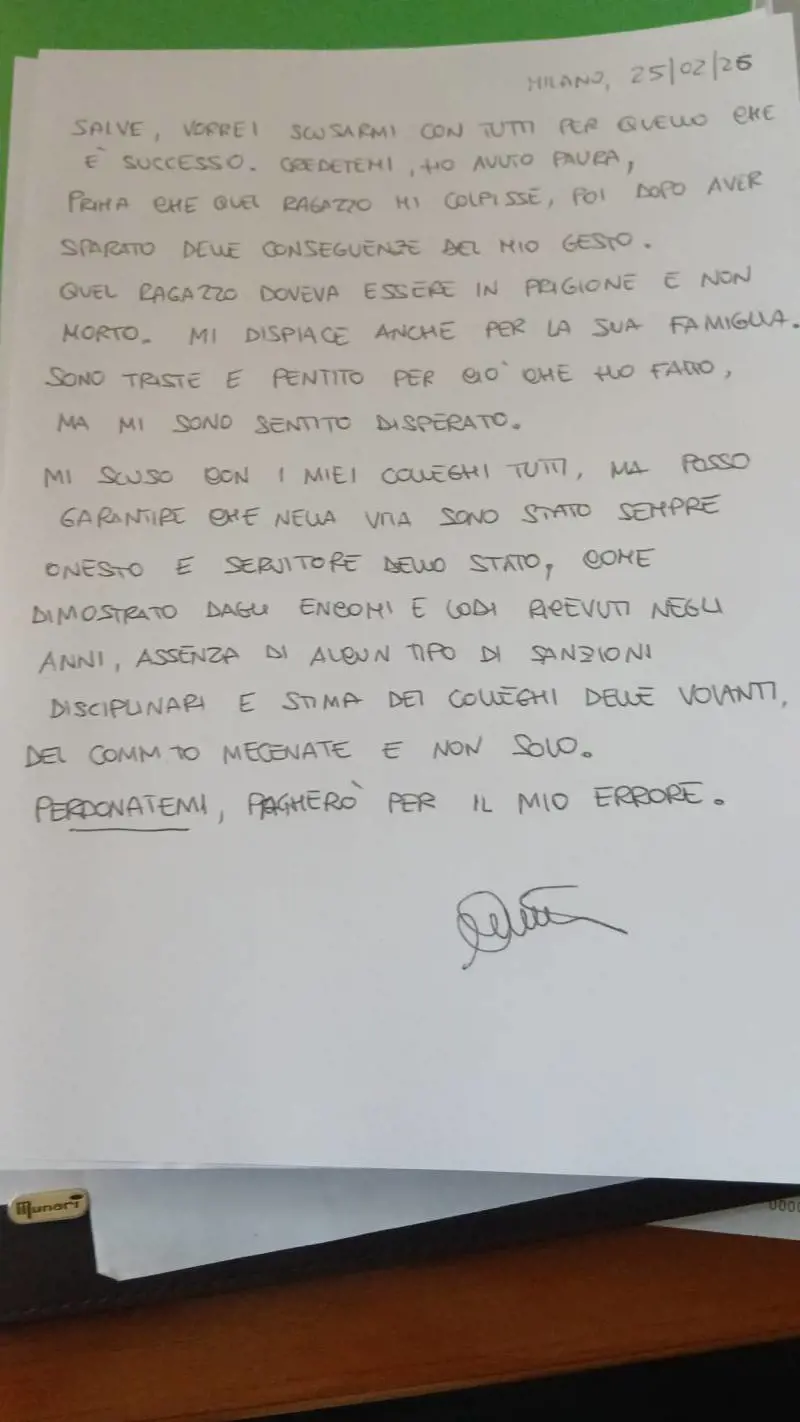 MILANO, 25/02/26
SALVE, VORREI SCUSARMI CON TUTTI PER QUELLO CHE
E' SUCCESSO. CREDETEMI, HO AVUTO PAURA,
PRIMA CHE QUEL RAGAZZO MI COLPISSE, POI DOPO AVER
SPARATO DELLE CONSEGUENZE DEL MIO GESTO.
QUEL RAGAZZO DOVEVA ESSERE IN PRIGIONE E NON
MORTO. MI DISPIACE ANCHE PER LA SUA FAMIGLIA.
SONO TRISTE E PENTITO PER CIO' CHE HO FATTO,
MA MI SONO SENTITO DISPERATO.
MI SCUSO CON I MIEI COLLEGHI TUTTI, MA POSSO
GARANTIRE CHE NELLA VITA SONO STATO SEMPRE
ONESTO E SERVITORE DELLO STATO, COME
DIMOSTRATO DAGLI ENCOMI E LODI RICEVUTI NEGLI
ANNI, ASSENZA DI ALCUN TIPO DI SANZIONI
DISCIPLINARI E STIMA DEI COLLEGHI DELLE VOLANTI,
DEL COMM TO MECENATE E NON SOLO.
PERDONATEMI, PAGHERO' PER IL MIO ERRORE.
Munari